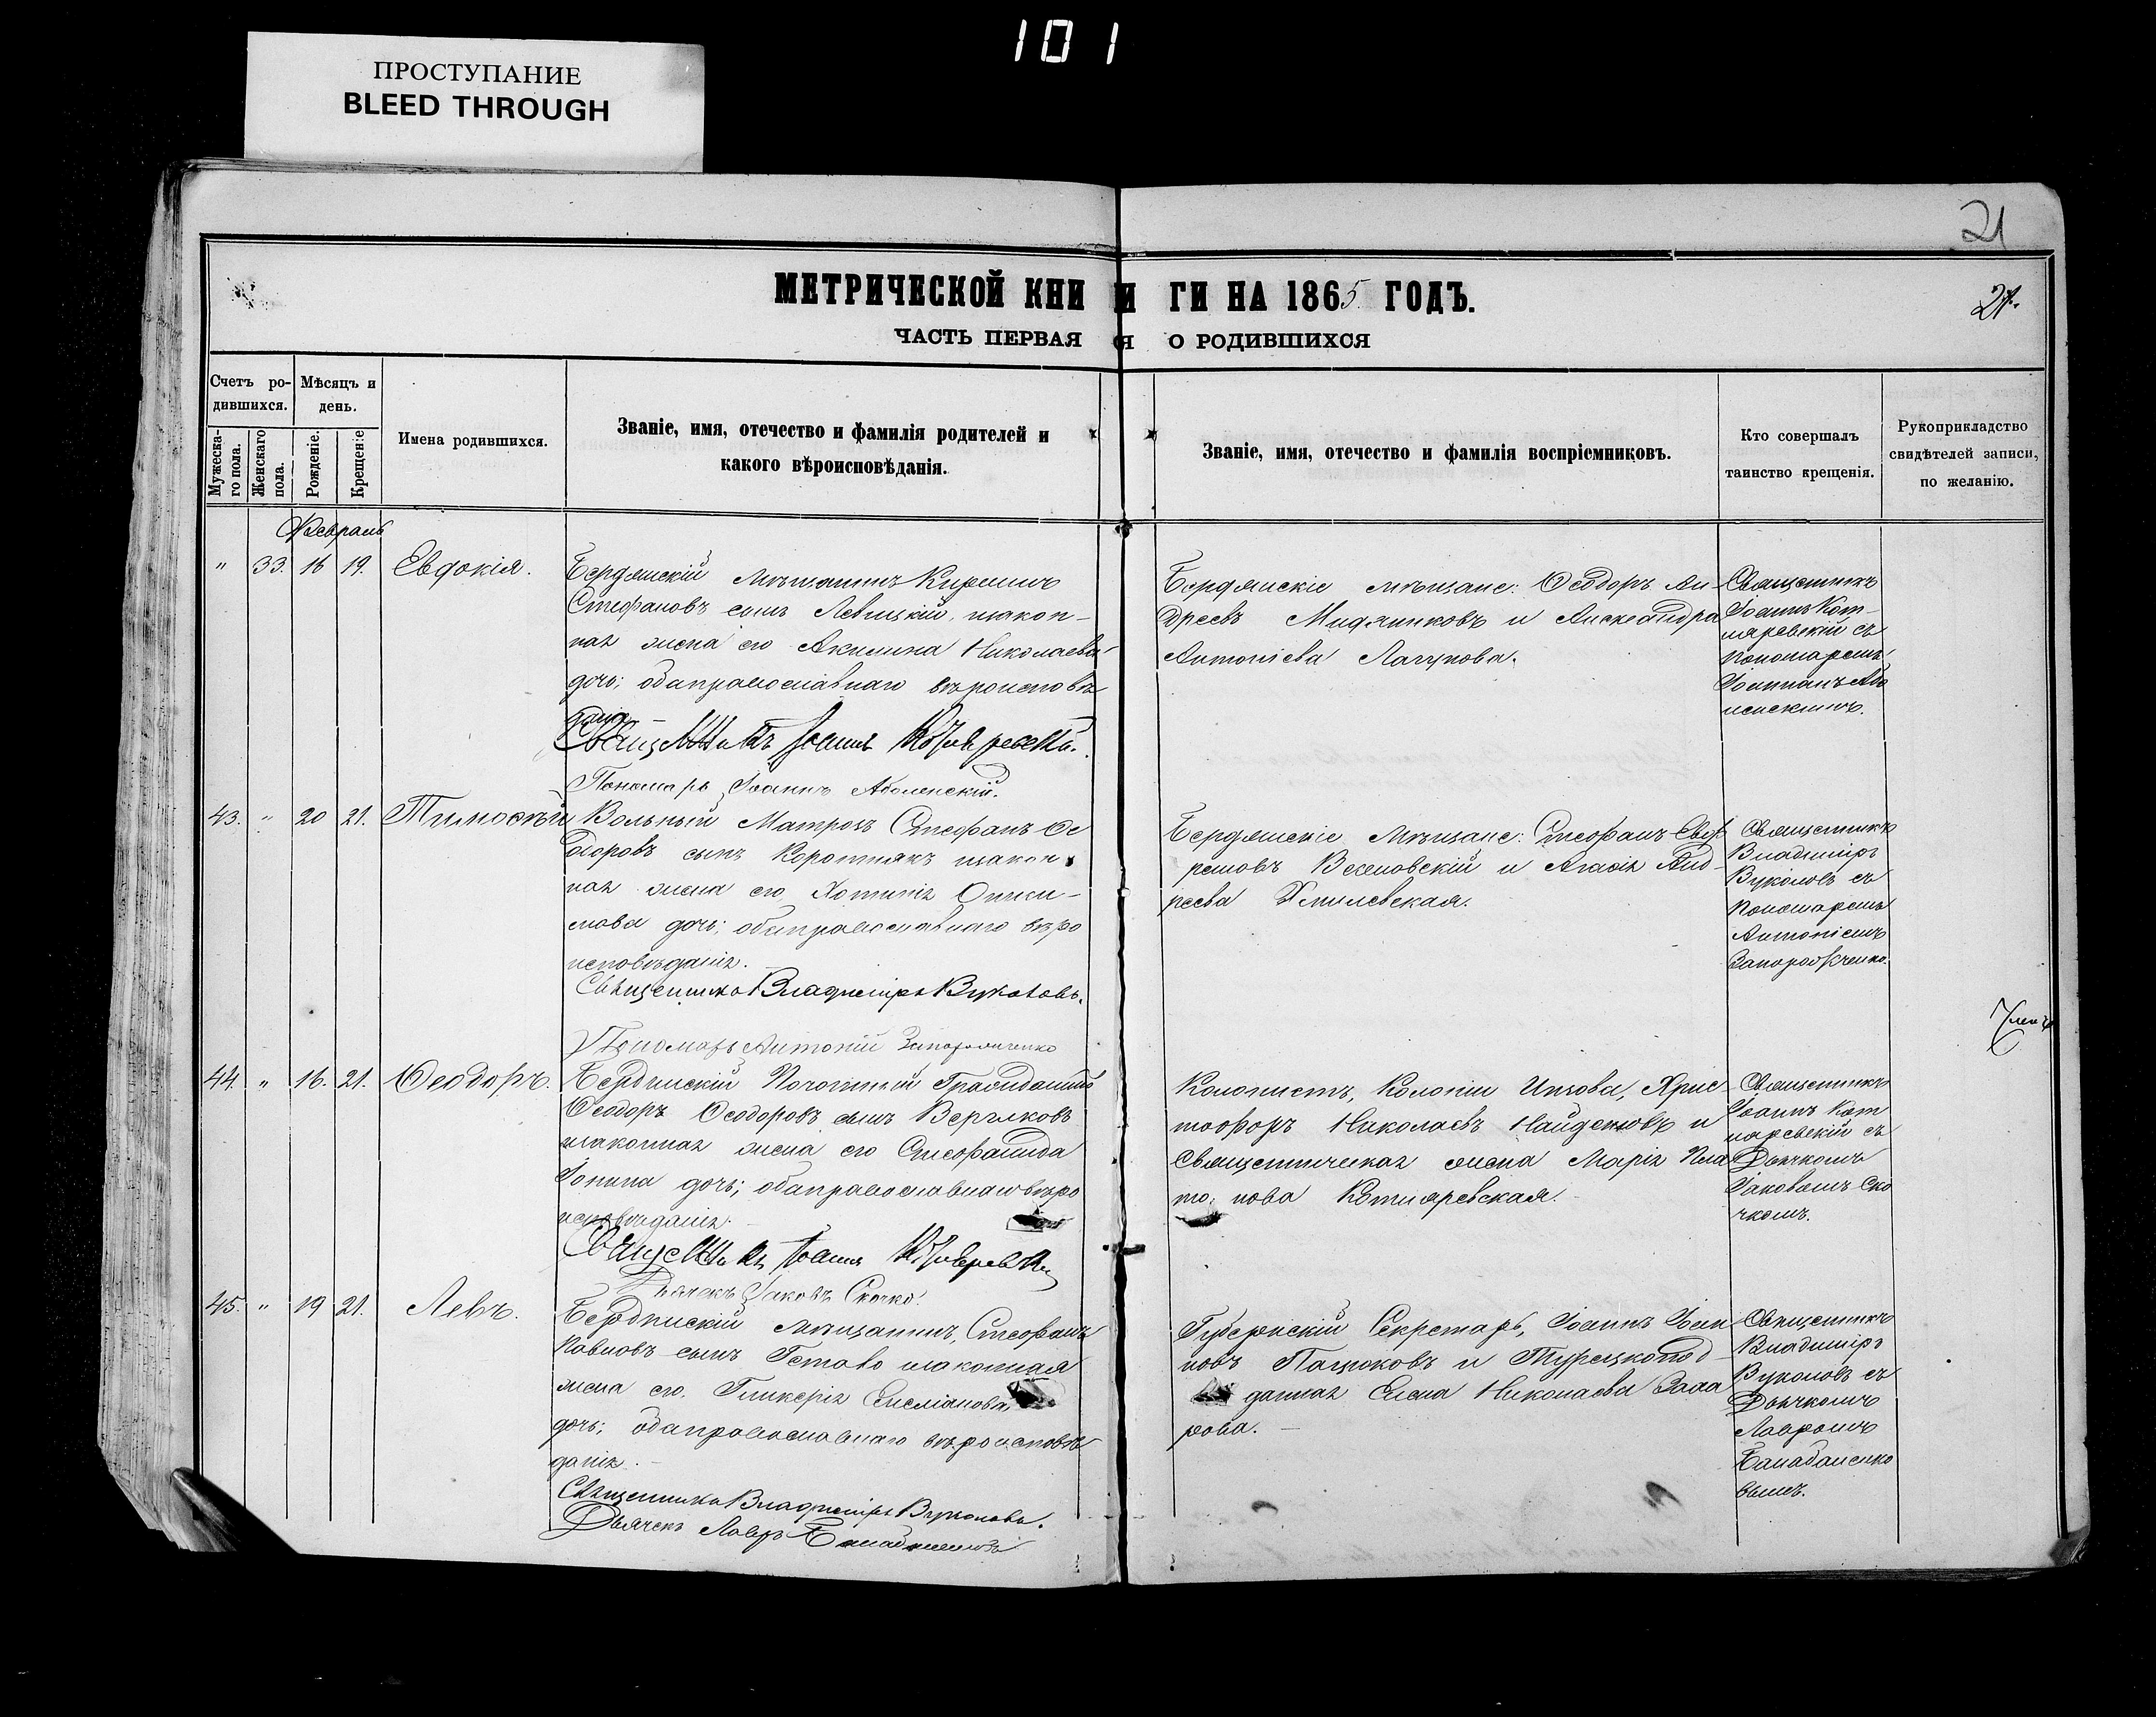 101
ПРОСТУПАНИЕ
BLEED THROUGH
21
21.
МЕТРИЧЕСКОЙ КНИ И ГИ НА 1865 ГОДЪ.
ЧАСТЬ ПЕРВАЯ Я О РОДИВШИХСЯ
Счетъ ро-
дившихся.
Мужеска-
го пола.
Женскаго
пола.
Мѣсяцъ и
день.
Рожденіе.
Крещеніе
Имена родившихся.
Званіе, имя, отечество и фамилія родителей и
какого вѣроисповѣданія.
Званіе, имя, отечество и фамилія воспріемниковъ.
Кто совершалъ
таинство крещенія.
Рукоприкладство
свидѣтелей записи,
по желанію.
Февраль
" 33. 16 19. Евдокія.
Бердянскій мѣщанинъ
Стефановъ сынъ Левицкій, закон-
ная жена его Акилина Николаева
дочь; оба православнаго вѣроисповѣ
данія
Священникъ Іоаннъ
Пономарь Іоаннъ Аболенскій.
Бердянскіе мѣщане: Ѳеодоръ Ан-
дреевъ и Александра
Антоніева Лагунова.
Священникъ
Іоаннъ Кот-
ляревскій съ
пономаремъ
Іоанномъ Або
ленскимъ.
43. " 20 21. Тимоѳей
Вольный Матрозъ Стефанъ Ѳе
доровъ сынъ Коротнякъ закон
ная жена его Хотинія
мова дочь; оба православнаго вѣро
исповѣданія.
Священникъ Владиміръ Вуколовъ.
Пономарь Антоній Запорожченко
Бердянскіе мѣщане: Стефанъ
ремовъ и Агаѳія Анд-
реева Хмилевская.
Священникъ
Владиміръ
Вуколовъ съ
Пономаремъ
Антоніемъ
Запорожченко.
44. " 16. 21. Ѳеодоръ.
Бердянскій Почотный Гражданинъ
Ѳеодоръ Ѳеодоровъ сынъ
законная жена его Стефанида
Іонина дочь; оба православнаго вѣро
исповѣданія.
Священникъ Іоаннъ
Дьячекъ Іаковъ Скочко.
Колонистъ, Колоніи Инзова, Хрис
тофоръ Николаевъ Найденовъ и
Священническая жена Марія Пла
то: нова Котляревская.
Священникъ
Іоаннъ Кот
ляревскій съ
Дьячкомъ
Іаковомъ Ско
чкомъ.
45. " 19 21. Левъ.
Бердянскій мѣщанинъ, Стефанъ
Павловъ сынъ законная
жена его. Гликерія Емеліанова
дочь; оба православнаго вѣроисповѣ
данія.
Священникъ Владиміръ Вуколовъ.
Дьячекъ Лавръ
Губернскій Секретарь, Іоаннъ Іоан
новъ Пацюковъ и Турецкопод
данная Елена Николаева Заха
рова.
Священникъ
Владиміръ
Вуколовъ съ
Дьячкомъ
Лавромъ
Балабаненко
вымъ.